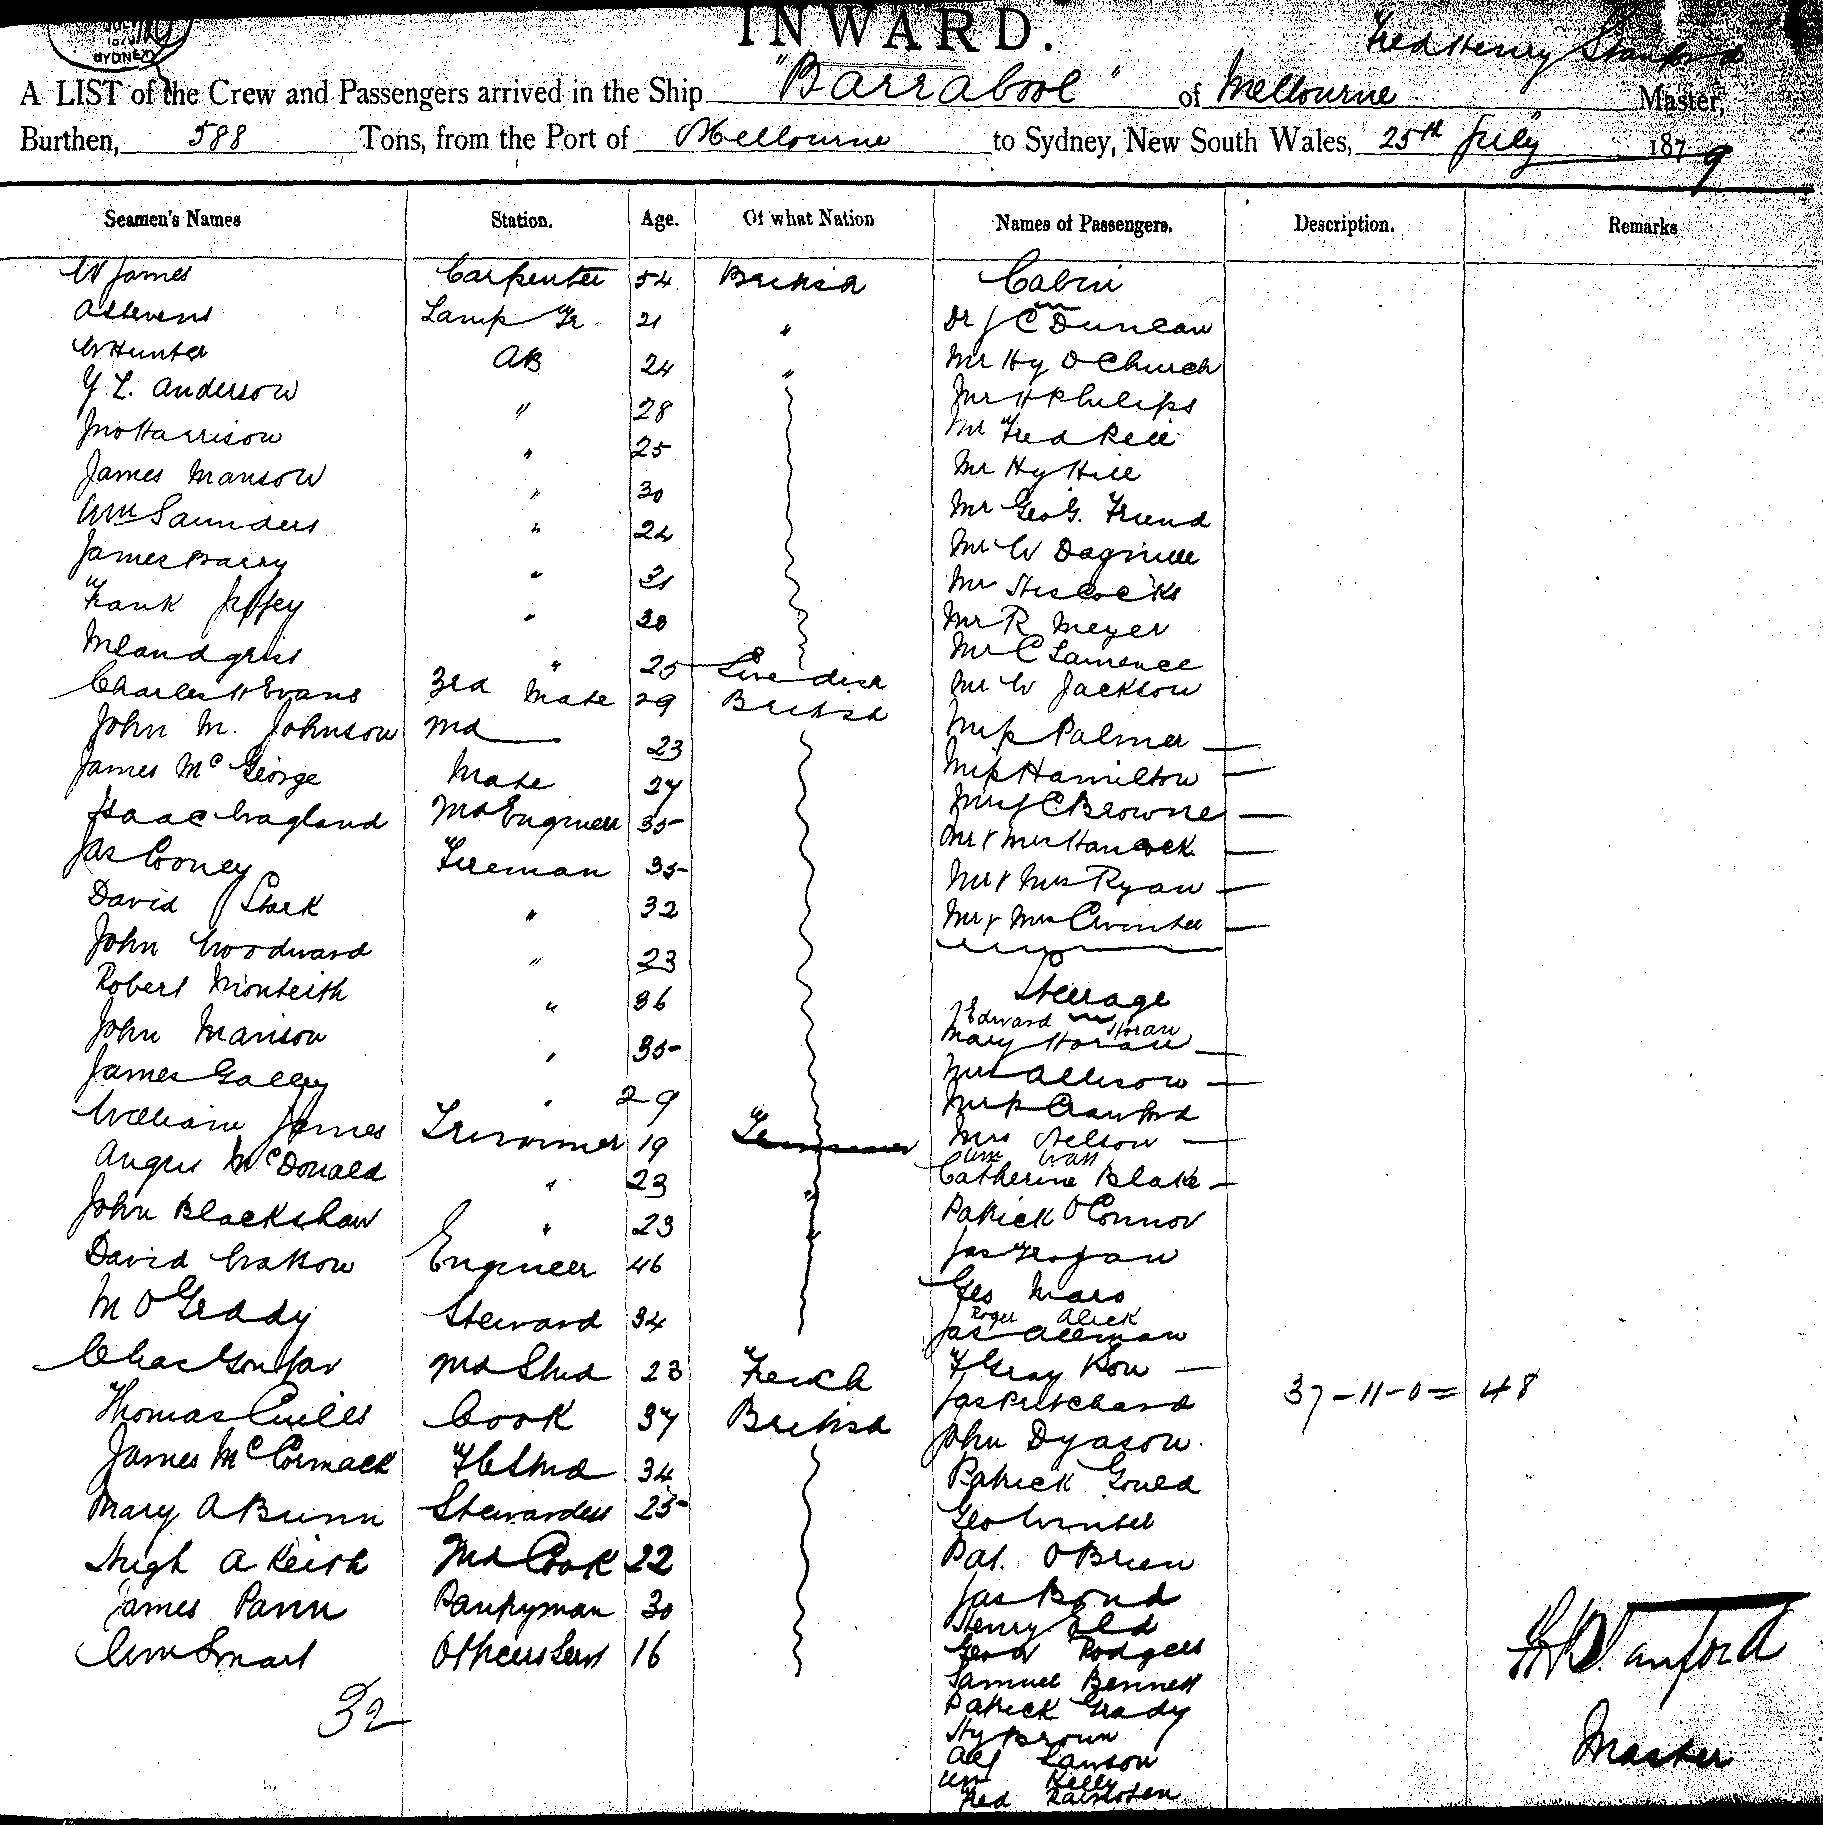 INWARD.
SYDNEY
Fred Henry Stanford
A LIST of the Crew and Passengers arrived in the Ship "Barrabool" of Melbourne Master,
Burthen, 588 Tons, from the Port of Melbourne to Sydney, New South Wales, 25th July 1879
Seamen's Names Station. Age. Of what Nation Names of Passengers. Description. Remarks
W James Carpenter 54 British Cabin
A Stevens Lamp Tr 21 " Dr J C Duncan
W Hunter AB 24 " Mr Hy O Church
Y. L. Anderson " 28 Mr H Philips
Jno Harrison " 25 Mr Fred Bell
James Manson " 30 Mr Hy Hill
Wm Saunders " 24 Mr Geo G. Friend
James Barry " 31 Mr W
Frank Jeffey " 20 Mr Hiscocks
" 25 Swedish Mr R Meyer
Charles H Evans 3rd Mate 29 British Mr C Lawrence
John M. Johnson 2nd 23 Mr W Jackson
James McGeorge Mate 27 Mrs Palmer
Isaac Wagland 2nd Engineer 35 Mrs Hamilton
Jas Cooney Fireman 35 Mrs J C Browne
David Stark " 32 Mr & Mrs Hancock
John Woodward " 23 Mr & Mrs Ryan
Robert Monteith " 36 Mr & Mrs C Winter
John Manson " 35 Steerage
James Galley " 29 Edward Horan
William James Trimmer 19 Mary Horan
Angus McDonald " 23 " Mrs Allison
John Blackshaw " 23 " Mrs Crawford
David Watson Engineer 46 Mrs Nelson
M O Grady Steward 34 Wm Watt
Chas 2nd Stwd 23 French Catherine Blake
Thomas Cook 37 British Patrick O'Connor
James McCormack F C Stwd 34 Jas Grogan
Mary A Bunn Stewardess 25 Geo Mars
Hugh A Keith 2nd Cook 22 Roger Alick
James Pann Pantryman 30 Jas Allman
Wm Smart Officers Servt 16 F Gray
32
Jas Pritchard 37-11-0 = 48
John Dyason
Patrick Gould
Geo Winter
Pat. O'Brien
Jas Bond
Henry Eld
Geo Rodgers
Samuel Bennett
Patrick Grady
Hy Brown
Alf Lawson
Wm Kelly
Fred
F H Stanford
Master